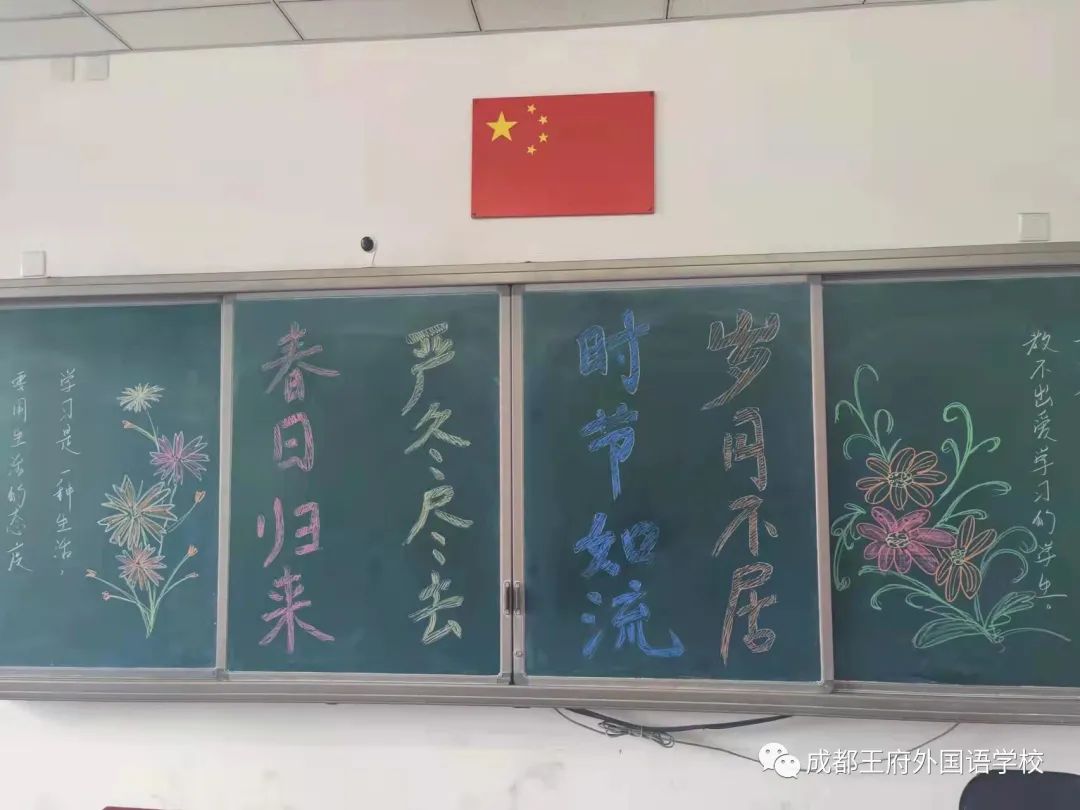 教不出爱学习的学生。
岁月不居
时节如流
严冬尽去
春日归来
学习是一种生活，
要用生活的态度
成都王府外国语学校